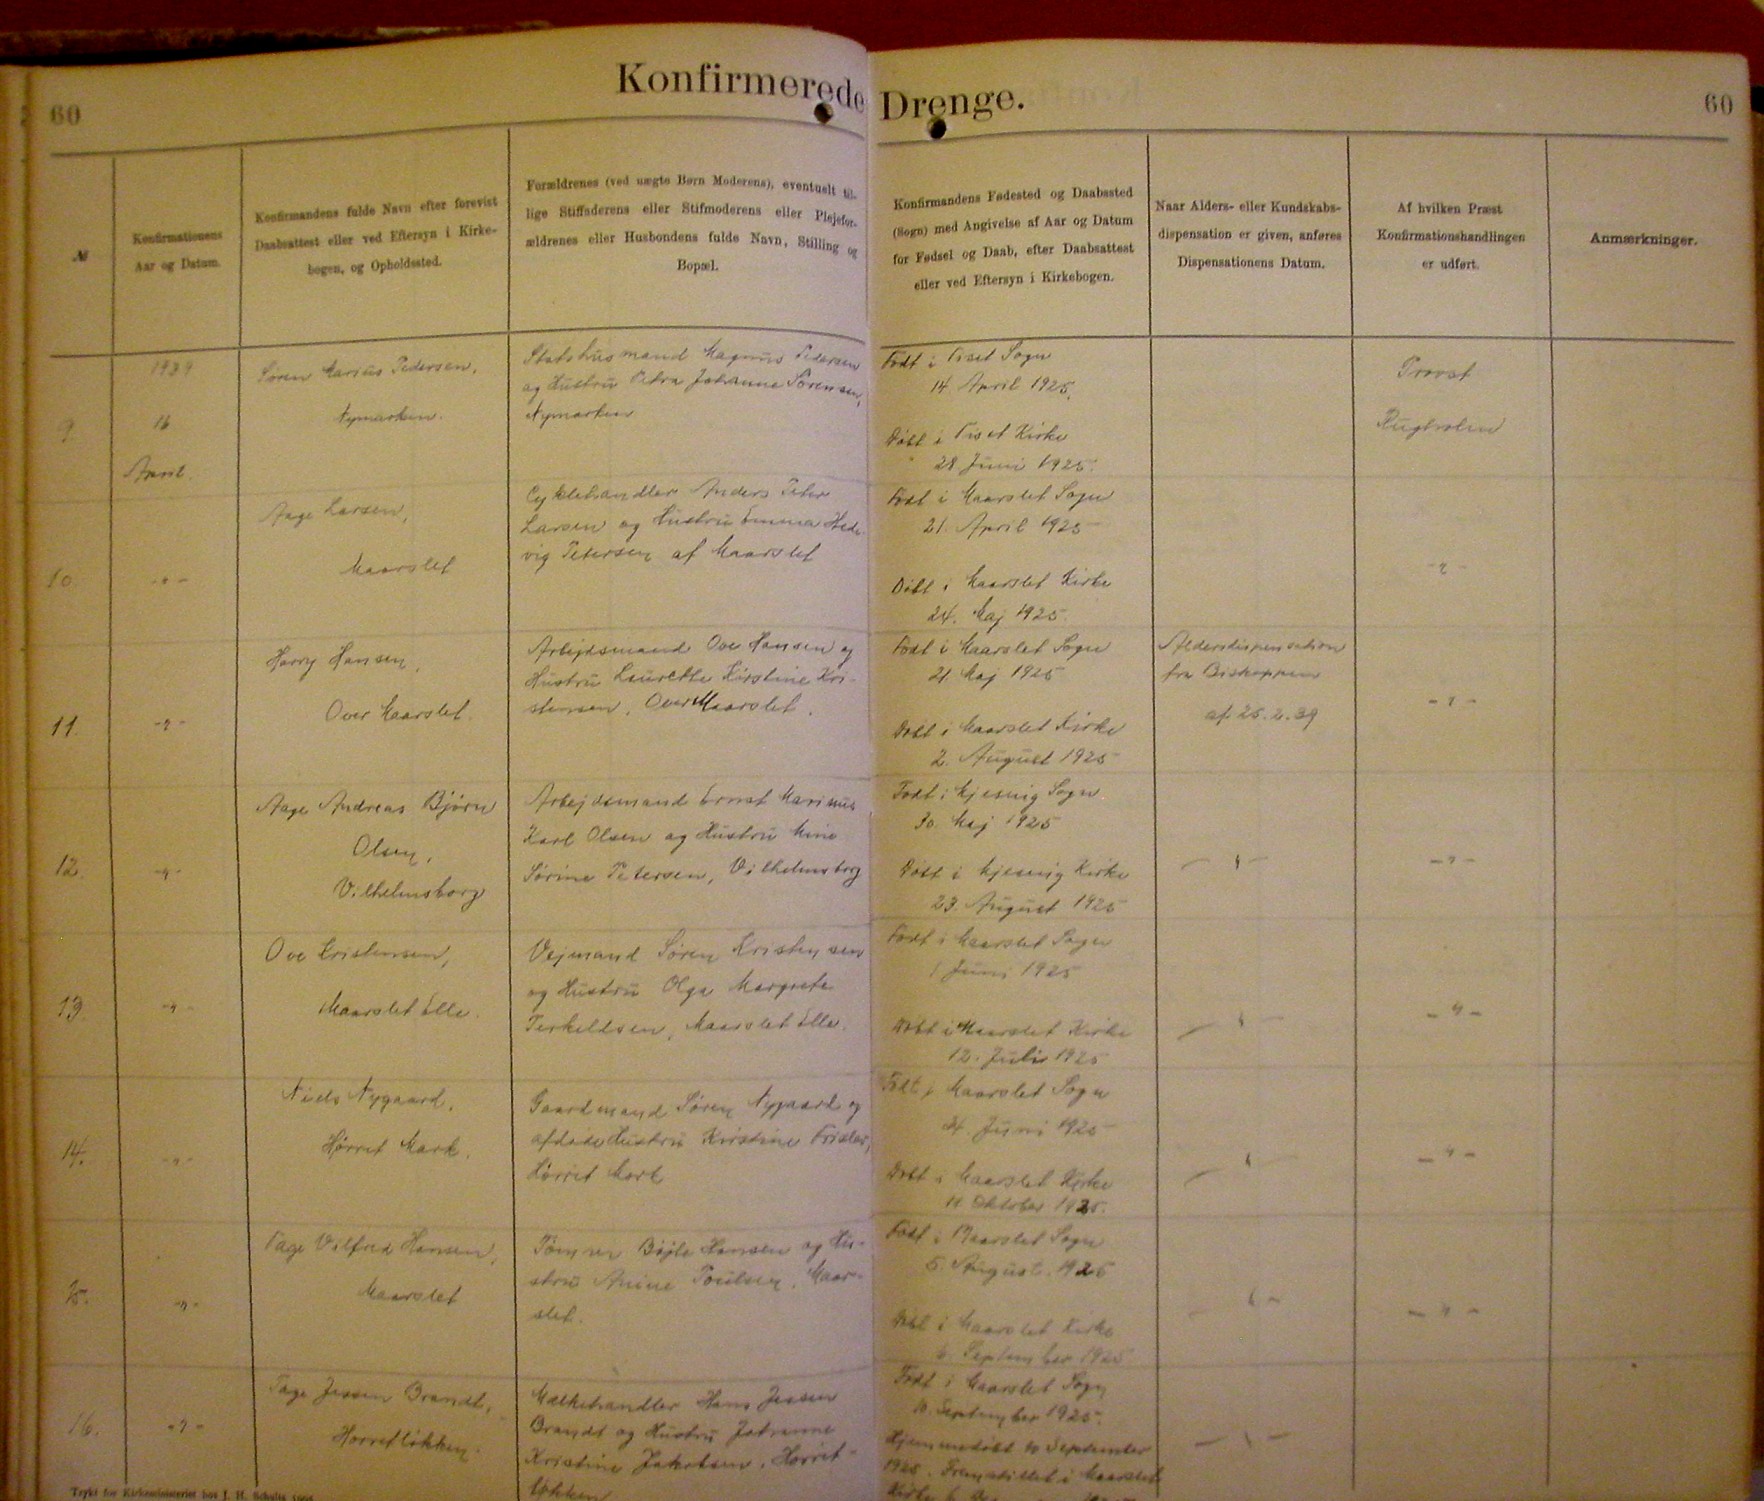 60
Konfirmerede Drenge.
60
№
Konfirmationens
Aar og Datum.
Konfirmandens fulde Navn efter forevist
Daabsattest eller ved Eftersyn i Kirke-
bogen, og Opholdssted.
Forældrenes (ved uægte Børn Moderens), eventuelt til-
lige Stiffaderens eller Stifmoderens eller Plejefor-
ældrenes eller Husbondens fulde Navn, Stilling og
Bopæl.
Konfirmandens Fødested og Daabssted
(Sogn) med Angivelse af Aar og Datum
for Fødsel og Daab, efter Daabsattest
eller ved Eftersyn i Kirkebogen.
Naar Alders- eller Kundskabs-
dispensation er given, anføres
Dispensationens Datum.
Af hvilken Præst
Konfirmationshandlingen
er udført.
Anmærkninger.
9
1939
16
April
Søren Marius Pedersen,
Nymarken.
Statshusmand Magnus Pedersen
og Hustru Petra Johanne Sørensen,
Nymarken
Født i Tiset Sogn
14 April 1925.
Døbt i Tiset Kirke
28 Juni 1925.
Provst
10
-"-
Aage Larsen,
Maarslet
Cyklehandler Anders Peter
Larsen og Hustru Emma Hede-
vig Petersen af Maarslet
Født i Maarslet Sogn
21. April 1925
Døbt i Maarslet Kirke
24. Maj 1925.
-"-
11.
-"-
Harry Hansen,
Over Maarslet.
Arbejdsmand Ove Hansen og
Hustru Laurette Kirstine Kri-
stensen, Over Maarslet.
Født i Maarslet Sogn
21 Maj 1925
Døbt i Maarslet Kirke
2. August 1925
Aldersdispensation
fra Biskoppen
af 25.2.39
-"-
12.
-"-
Aage Andreas Bjørn
Olsen,
Vilhelmsborg
Arbejdsmand Ernst Marinus
Karl Olsen og Hustru Mine
Sørine Petersen, Vilhelmsborg
Født i Mjesing Sogn
30. Maj 1925
Døbt i Mjesing Kirke
23. August 1925
- " -
-"-
13.
-"-
Ove Kristensen,
Maarslet Elle.
Vejmand Søren Kristensen
og Hustru Olga Margrete
Terkildsen, Maarslet Elle.
Født i Maarslet Sogn
1 Juni 1925
Døbt i Maarslet Kirke
12. Juli 1925
- " -
-"-
14.
-"-
Niels Nygaard,
Hørret Mark.
Gaardmand Søren Nygaard og
afdøde Hustru Kirstine
Hørret Mark
Født i Maarslet Sogn
Juni 1925
Døbt i Maarslet Kirke
11 Oktober 1925.
- " -
-"-
15.
-"-
Tage Vilfred Hansen,
Maarslet
Tømrer Bøjle Hansen og Hu-
stru Anine Poulsen, Maar-
slet.
Født i Maarslet Sogn
5. August 1925
Døbt i Maarslet Kirke
6. September 1925
- " -
-"-
16.
-"-
Tage Jessen Brandt,
Hørretløkken.
Mælkehandler Hans Jessen
Brandt og Hustru Johanne
Kristine Jakobsen, Hørret-
løkken
Født i Maarslet Sogn
10. September 1925.
Hjemmedøbt 10 September
1925. Fremstillet i Maarslet
Kirke
- " -
Trykt for Kirkeministeriet hos J. H. Schultz